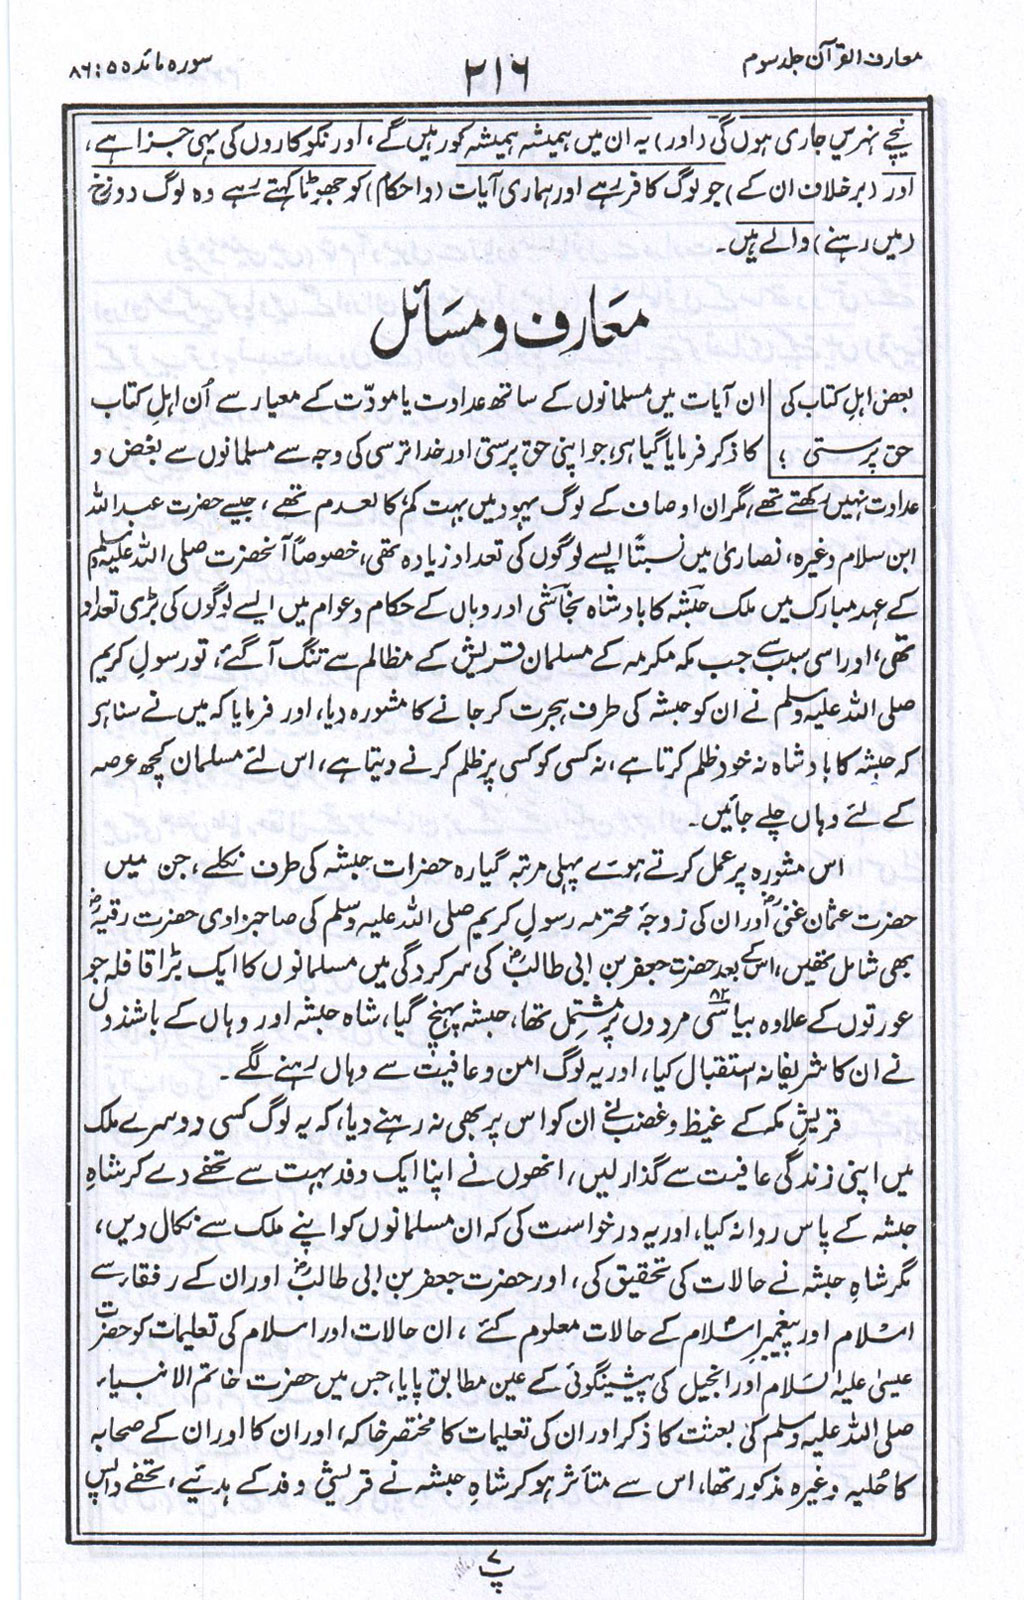 معارف القرآن جلد سوم
۲۱۶
سورہ مائدہ ۵ : ۸۶
نیچے نہریں جاری ہوں گی (اور) یہ ان میں ہمیشہ ہمیشہ کو رہیں گے، اور نکو کاروں کی یہی جزا ہے،
اور (برخلاف ان کے) جو لوگ کافر رہے اور ہماری آیات (و احکام) کو جھوٹا کہتے رہے وہ لوگ دوزخ
(میں رہنے) والے ہیں۔
معارف و مسائل
بعض اہل کتاب کی
حق پرستی ؛
ان آیات میں مسلمانوں کے ساتھ عداوت یا مودّت کے معیار سے اُن اہلِ کتاب
کا ذکر فرمایا گیا ہی، جو اپنی حق پرستی اور خدا ترسی کی وجہ سے مسلمانوں سے بغض و
عداوت نہیں رکھتے تھے، مگر ان اوصاف کے لوگ یہود میں بہت کم، کالعدم تھے، جیسے حضرت عبداللہ
ابن سلام وغیرہ، نصاریٰ میں نسبتاً ایسے لوگوں کی تعداد زیادہ تھی، خصوصاً آنحضرت صلی اللہ علیہ وسلم
کے عہد مبارک میں ملک حبشہ کا بادشاہ نجاشی اور وہاں کے حکام و عوام میں ایسے لوگوں کی بڑی تعداد
تھی، اور اسی سبب سے جب مکہ مکرمہ کے مسلمان قریش کے مظالم سے تنگ آ گئے، تو رسولِ کریم
صلی اللہ علیہ وسلم نے ان کو حبشہ کی طرف ہجرت کر جانے کا مشورہ دیا، اور فرمایا کہ میں نے سنا ہر
کہ حبشہ کا بادشاہ نہ خود ظلم کرتا ہے، نہ کسی کو کسی پر ظلم کرنے دیتا ہے، اس لئے مسلمان کچھ عرصہ
کے لئے وہاں چلے جائیں۔
اس مشورہ پر عمل کرتے ہوئے پہلی مرتبہ گیارہ حضرات حبشہ کی طرف نکلے، جن میں
حضرت عثمان غنیؓ اور ان کی زوجۂ محترمہ رسولِ کریم صلی اللہ علیہ وسلم کی صاحبزادی حضرت رقیہؓ
بھی شامل تھیں، اس کے بعد حضرت جعفر بن ابی طالبؓ کی سرکردگی میں مسلمانوں کا ایک بڑا قافلہ جو
عورتوں کے علاوہ بیاسی ۸۲ مردوں پر مشتمل تھا، حبشہ پہنچ گیا، شاہ حبشہ اور وہاں کے باشندوں
نے ان کا شریفانہ استقبال کیا، اور یہ لوگ امن و عافیت سے وہاں رہنے لگے۔
قریشِ مکہ کے غیظ و غضب نے ان کو اس پر بھی نہ رہنے دیا، کہ یہ لوگ کسی دوسرے ملک
میں اپنی زندگی عافیت سے گذار لیں، انھوں نے اپنا ایک وفد بہت سے تحفے دے کر شاہِ
حبشہ کے پاس روانہ کیا، اور یہ درخواست کی کہ ان مسلمانوں کو اپنے ملک سے نکال دیں،
مگر شاہِ حبشہ نے حالات کی تحقیق کی، اور حضرت جعفر بن ابی طالبؓ اور ان کے رفقاء سے
اسلام اور پیغمبرِ اسلام کے حالات معلوم کئے، ان حالات اور اسلام کی تعلیمات کو حضرت
عیسیٰ علیہ السلام اور انجیل کی پیشینگوئی کے عین مطابق پایا، جس میں حضرت خاتم الانبیاء
صلی اللہ علیہ وسلم کی بعثت کا ذکر اور ان کی تعلیمات کا مختصر خاکہ، اور ان کا اور ان کے صحابہ
کا حُلیہ وغیرہ مذکور تھا، اس سے متأثر ہو کر شاہِ حبشہ نے قریشی وفد کے ہدئیے، تحفے واپس
پ